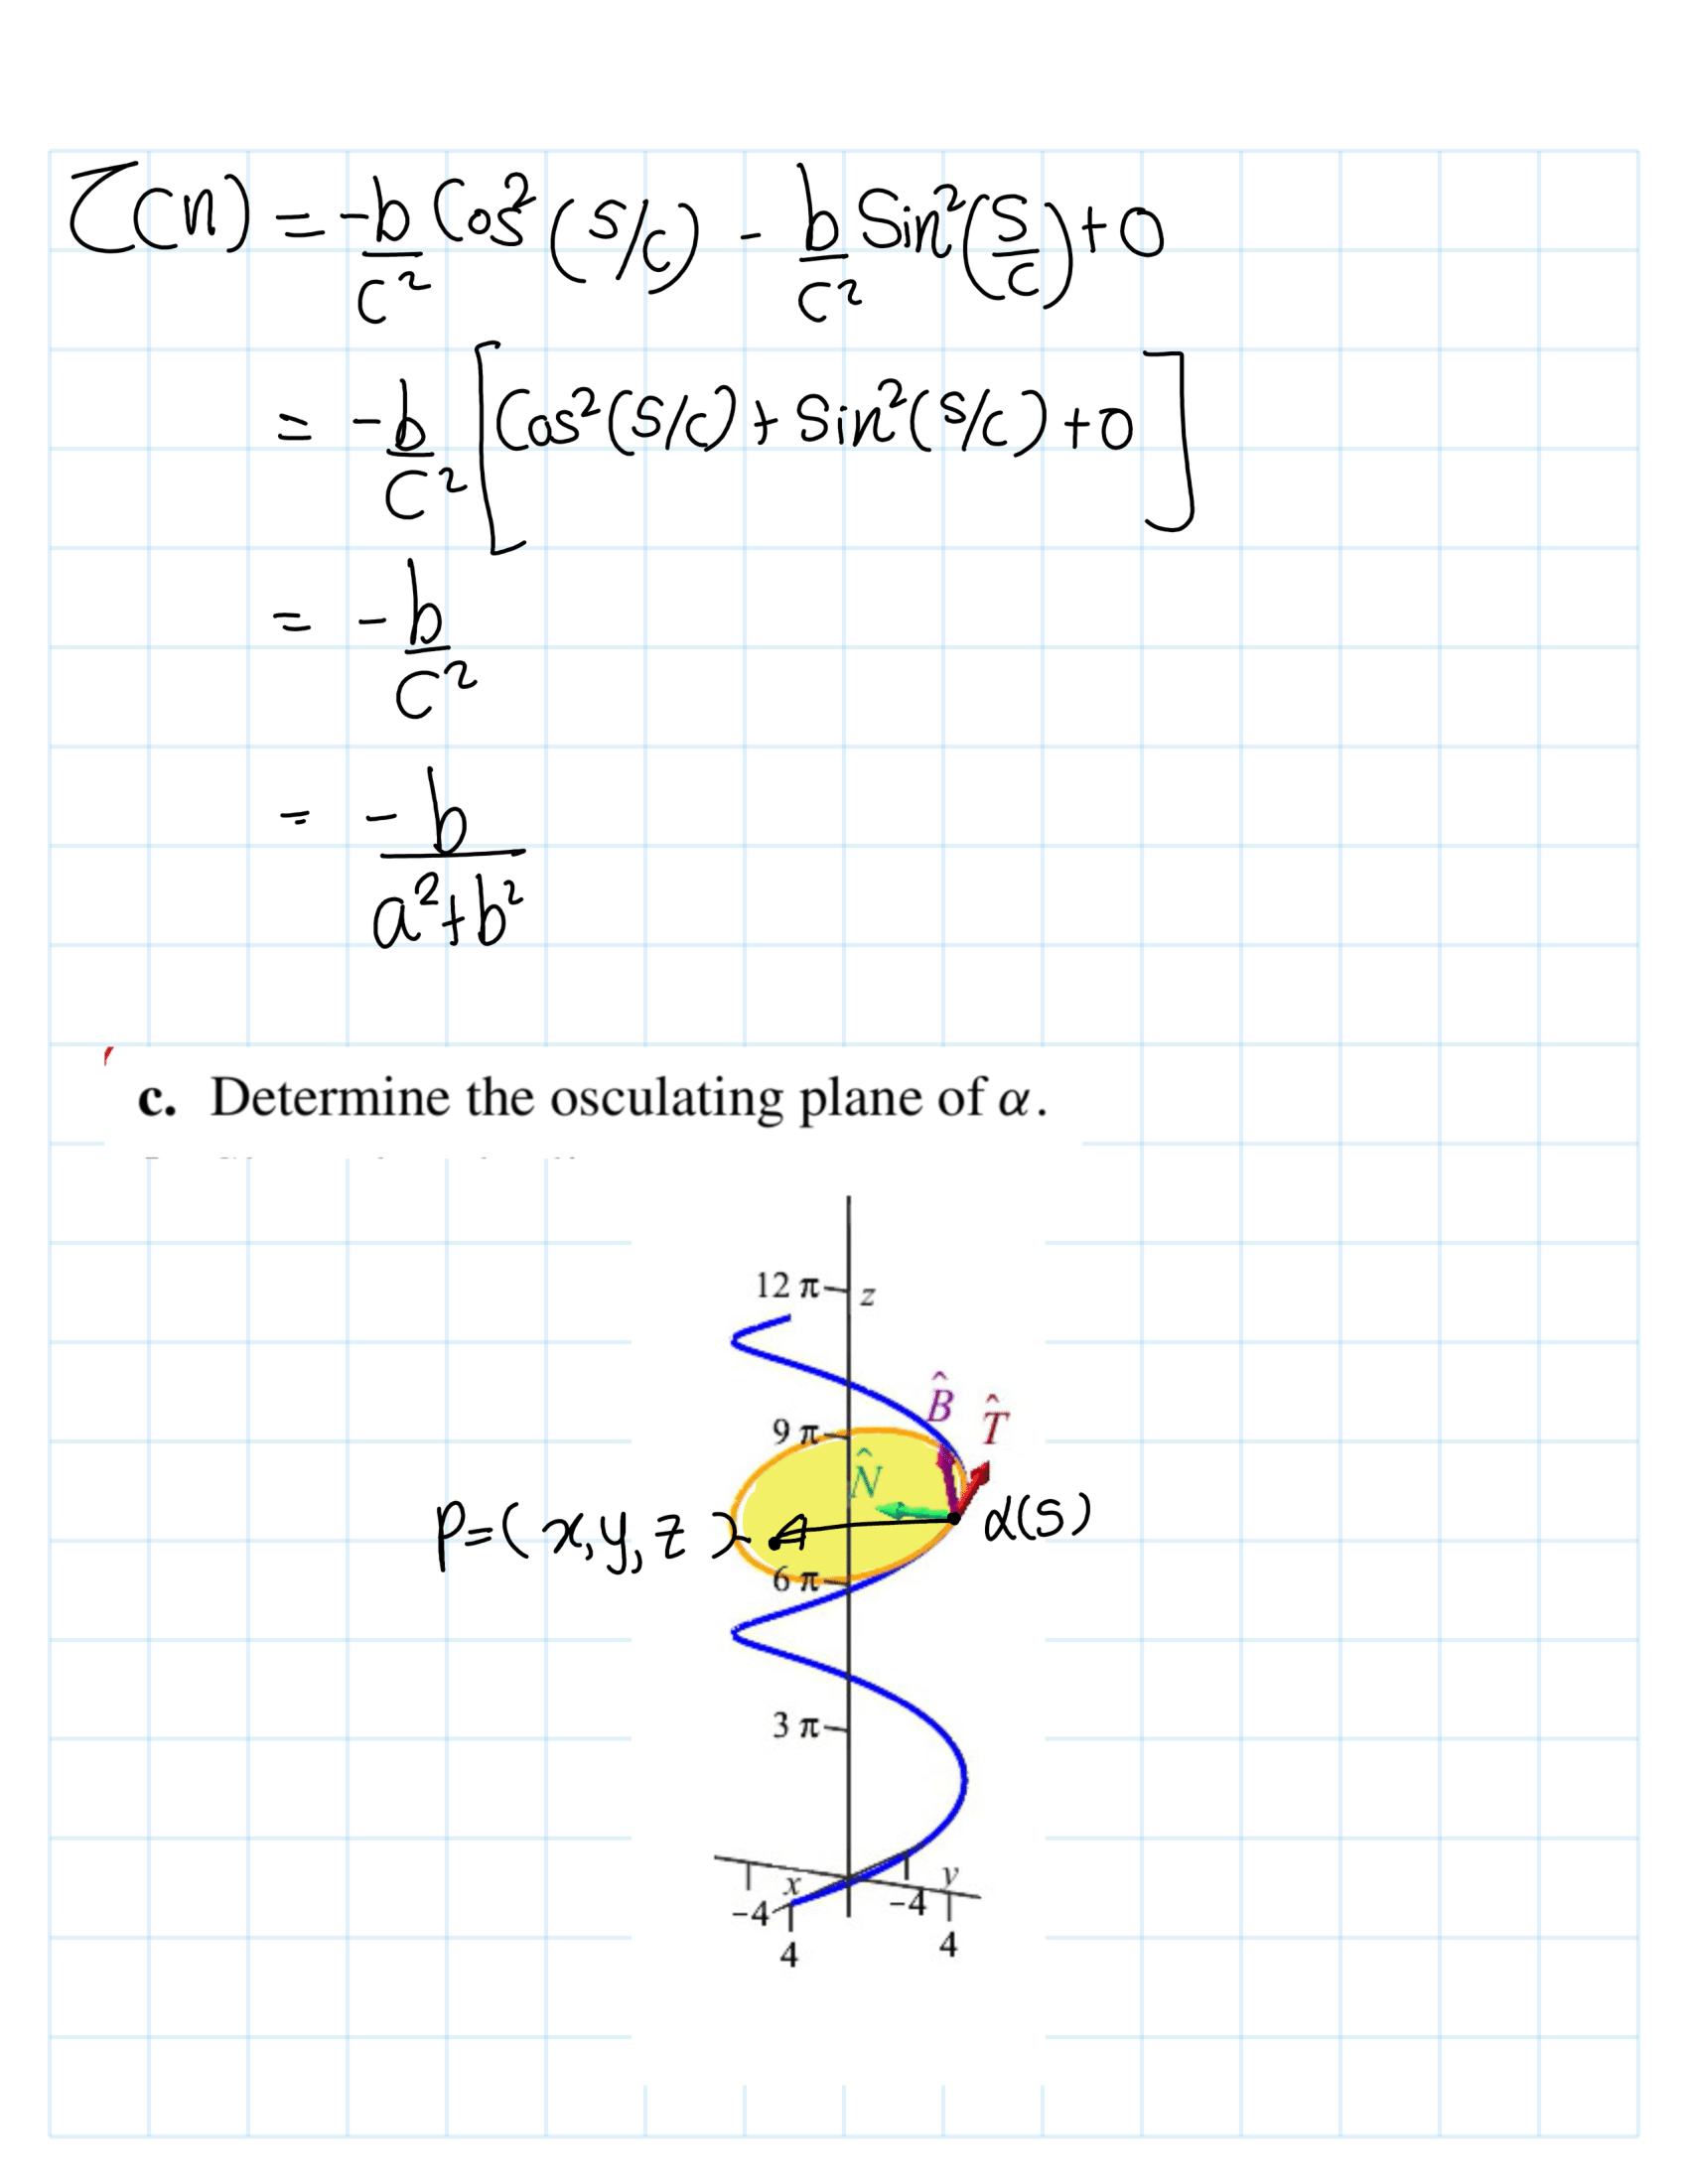 τ(n) = -b/c² Cos²(s/c) - b/c² Sin²(s/c) + 0
= -b/c² [Cos²(s/c) + Sin²(s/c) + 0]
= -b/c²
= -b/a²+b²
c. Determine the osculating plane of α.
12 π z
B̂ T̂
9 π
N̂
P=(x,y,z) α(s)
6 π
3 π
x y
-4 -4
4 4